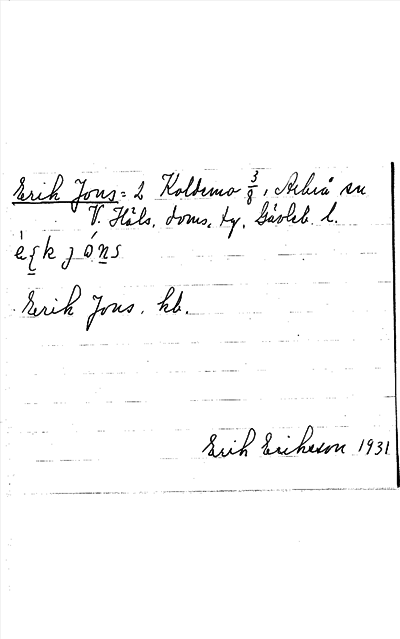 Erik Jons = 2 Koldemo 3/8, Arbrå sn
V. Häls. doms. ty. Gävleb. l.
Erik Jons. kb.
Erik Erikson 1931